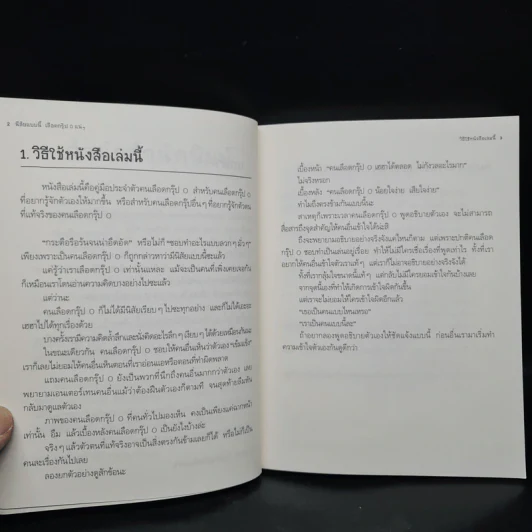 2 นิสัยแบบนี้ เลือดกรุ๊ป O แน่ๆ
1. วิธีใช้หนังสือเล่มนี้
หนังสือเล่มนี้คือคู่มือประจำตัวคนเลือดกรุ๊ป O สำหรับคนเลือดกรุ๊ป O
ที่อยากรู้จักตัวเองให้มากขึ้น หรือสำหรับคนเลือดกรุ๊ปอื่นๆ ที่อยากรู้จักตัวตน
ที่แท้จริงของคนเลือดกรุ๊ป O
"กระตือรือร้นจนน่าอึดอัด" หรือไม่ก็ "ชอบทำอะไรแบบลวกๆ มั่วๆ"
เพียงเพราะเป็นคนเลือดกรุ๊ป O ก็ถูกกล่าวหาว่ามีนิสัยแบบนี้ซะแล้ว
แค่รู้ว่าเราเลือดกรุ๊ป O เท่านั้นแหละ แม้จะเป็นคนที่เพิ่งเคยเจอกัน
ก็เหมือนเราโดนอ่านความคิดบางอย่างไปซะแล้ว
แต่ว่านะ
คนเลือดกรุ๊ป O ก็ไม่ได้มีนิสัยเรียบๆ ไปซะทุกอย่าง และก็ไม่ได้เอะอะ
เฮฮาไปได้ทุกเรื่องด้วย
บางครั้งเรามีความคิดล้ำลึกและนั่งคิดอะไรลึกๆ เงียบๆ ได้ด้วยเหมือนกันนะ
ในขณะเดียวกัน คนเลือดกรุ๊ป O ชอบให้คนอื่นเห็นว่าตัวเอง "เข้มแข็ง"
เราก็เลยไม่ยอมให้คนอื่นเห็นตอนที่เราอ่อนแอหรือตอนที่ทำผิดพลาด
แถมคนเลือดกรุ๊ป O ยังเป็นพวกที่นึกถึงคนอื่นมากกว่าตัวเอง และ
พยายามเอนเตอร์เทนคนอื่นแม้ว่าต้องฝืนตัวเองก็ตามที จนสุดท้ายลืมหัน
กลับมาดูแลตัวเอง
ภาพของคนเลือดกรุ๊ป O ที่คนทั่วไปมองเห็น คงเป็นเพียงแค่ฉากหน้า
เท่านั้น อืม แล้วเบื้องหลังคนเลือดกรุ๊ป O เป็นยังไงบ้างล่ะ
จริงๆ แล้วตัวตนที่แท้จริงอาจเป็นสิ่งตรงกันข้ามเลยก็ได้ หรือไม่ก็เป็น
คนละเรื่องกันไปเลย
ลองยกตัวอย่างดูสักข้อนะ
วิธีใช้หนังสือเล่มนี้ 3
เบื้องหน้า "คนเลือดกรุ๊ป O เฮฮาได้ตลอด ไม่กังวลอะไรมาก"
ไม่จริงหรอก
เบื้องหลัง "คนเลือดกรุ๊ป O น้อยใจง่าย เสียใจง่าย"
ทำไมถึงตรงข้ามกันแบบนี้ล่ะ
สาเหตุก็เพราะเวลาคนเลือดกรุ๊ป O พูดอธิบายตัวเอง จะไม่สามารถ
สื่อสารถึงจุดสำคัญให้คนอื่นเข้าใจได้น่ะสิ
ถึงจะพยายามอธิบายอย่างจริงจังแค่ไหนก็ตาม แต่เพราะปกติคนเลือด
กรุ๊ป O ชอบทำเป็นเล่นอยู่บ่อยๆ ทำให้ไม่มีใครเชื่อเรื่องที่พูดเท่าไร ทั้งที่เรา
อยากให้คนอื่นเข้าใจตัวเราแท้ๆ แต่เราก็ไม่อาจอธิบายอย่างจริงจังได้
ทั้งที่เรากลุ้มใจขนาดนี้แท้ๆ แต่กลับไม่มีใครยอมเข้าใจกันบ้างเลย
จากจุดนี้เองที่ทำให้เกิดการเข้าใจผิดกันขึ้น
แต่เราจะไม่ยอมให้ใครเข้าใจผิดอีกแล้ว
"เธอเป็นคนแบบไหนเหรอ"
"เราเป็นคนแบบนี้ละ"
ถ้าอยากลองพูดอธิบายตัวเองให้ชัดแจ้งแบบนี้ ก่อนอื่นเรามาเริ่มทำ
ความเข้าใจตัวเองกันดูดีกว่า